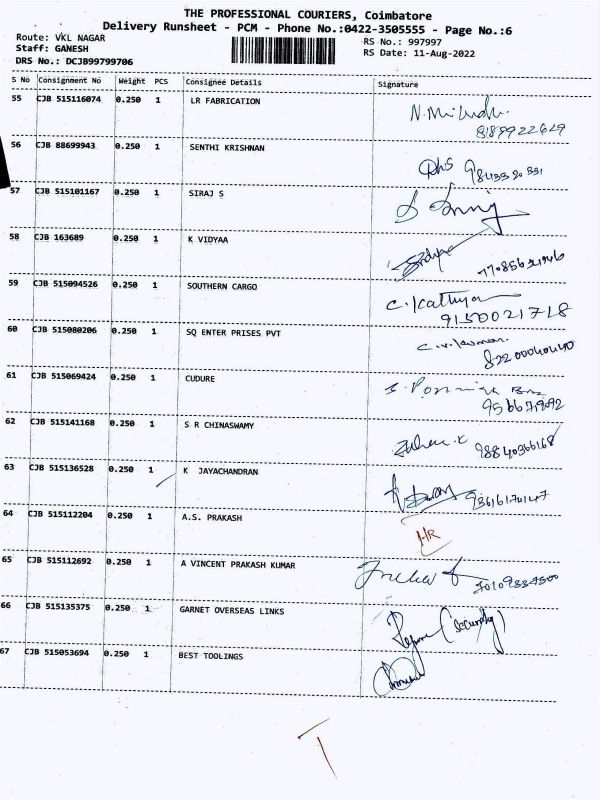 THE PROFESSIONAL COURIERS, Coimbatore
Delivery Runsheet - PCM - Phone No.:0422-3505555 - Page No.:6
Route: VKL NAGAR
RS No.: 997997
Staff: GANESH
RS Date: 11-Aug-2022
DRS No.: DCJB99799706
S No Consignment No Weight PCS Consignee Details Signature
55 CJB 515116074 0.250 1 LR FABRICATION
8189922629
56 CJB 88699943 0.250 1 SENTHI KRISHNAN
57 CJB 515101167 0.250 1 SIRAJ S
58 CJB 163689 0.250 1 K VIDYAA
59 CJB 515094526 0.250 1 SOUTHERN CARGO
9150021718
60 CJB 515080206 0.250 1 SQ ENTER PRISES PVT
61 CJB 515069424 0.250 1 CUDURE
62 CJB 515141168 0.250 1 S R CHINASWAMY
63 CJB 515136528 0.250 1 K JAYACHANDRAN
64 CJB 515112204 0.250 1 A.S. PRAKASH
65 CJB 515112692 0.250 1 A VINCENT PRAKASH KUMAR
66 CJB 515135375 0.250 1 GARNET OVERSEAS LINKS
(Security)
67 CJB 515053694 0.250 1 BEST TOOLINGS